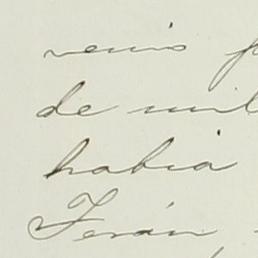 venis
de mil
habia
Terán